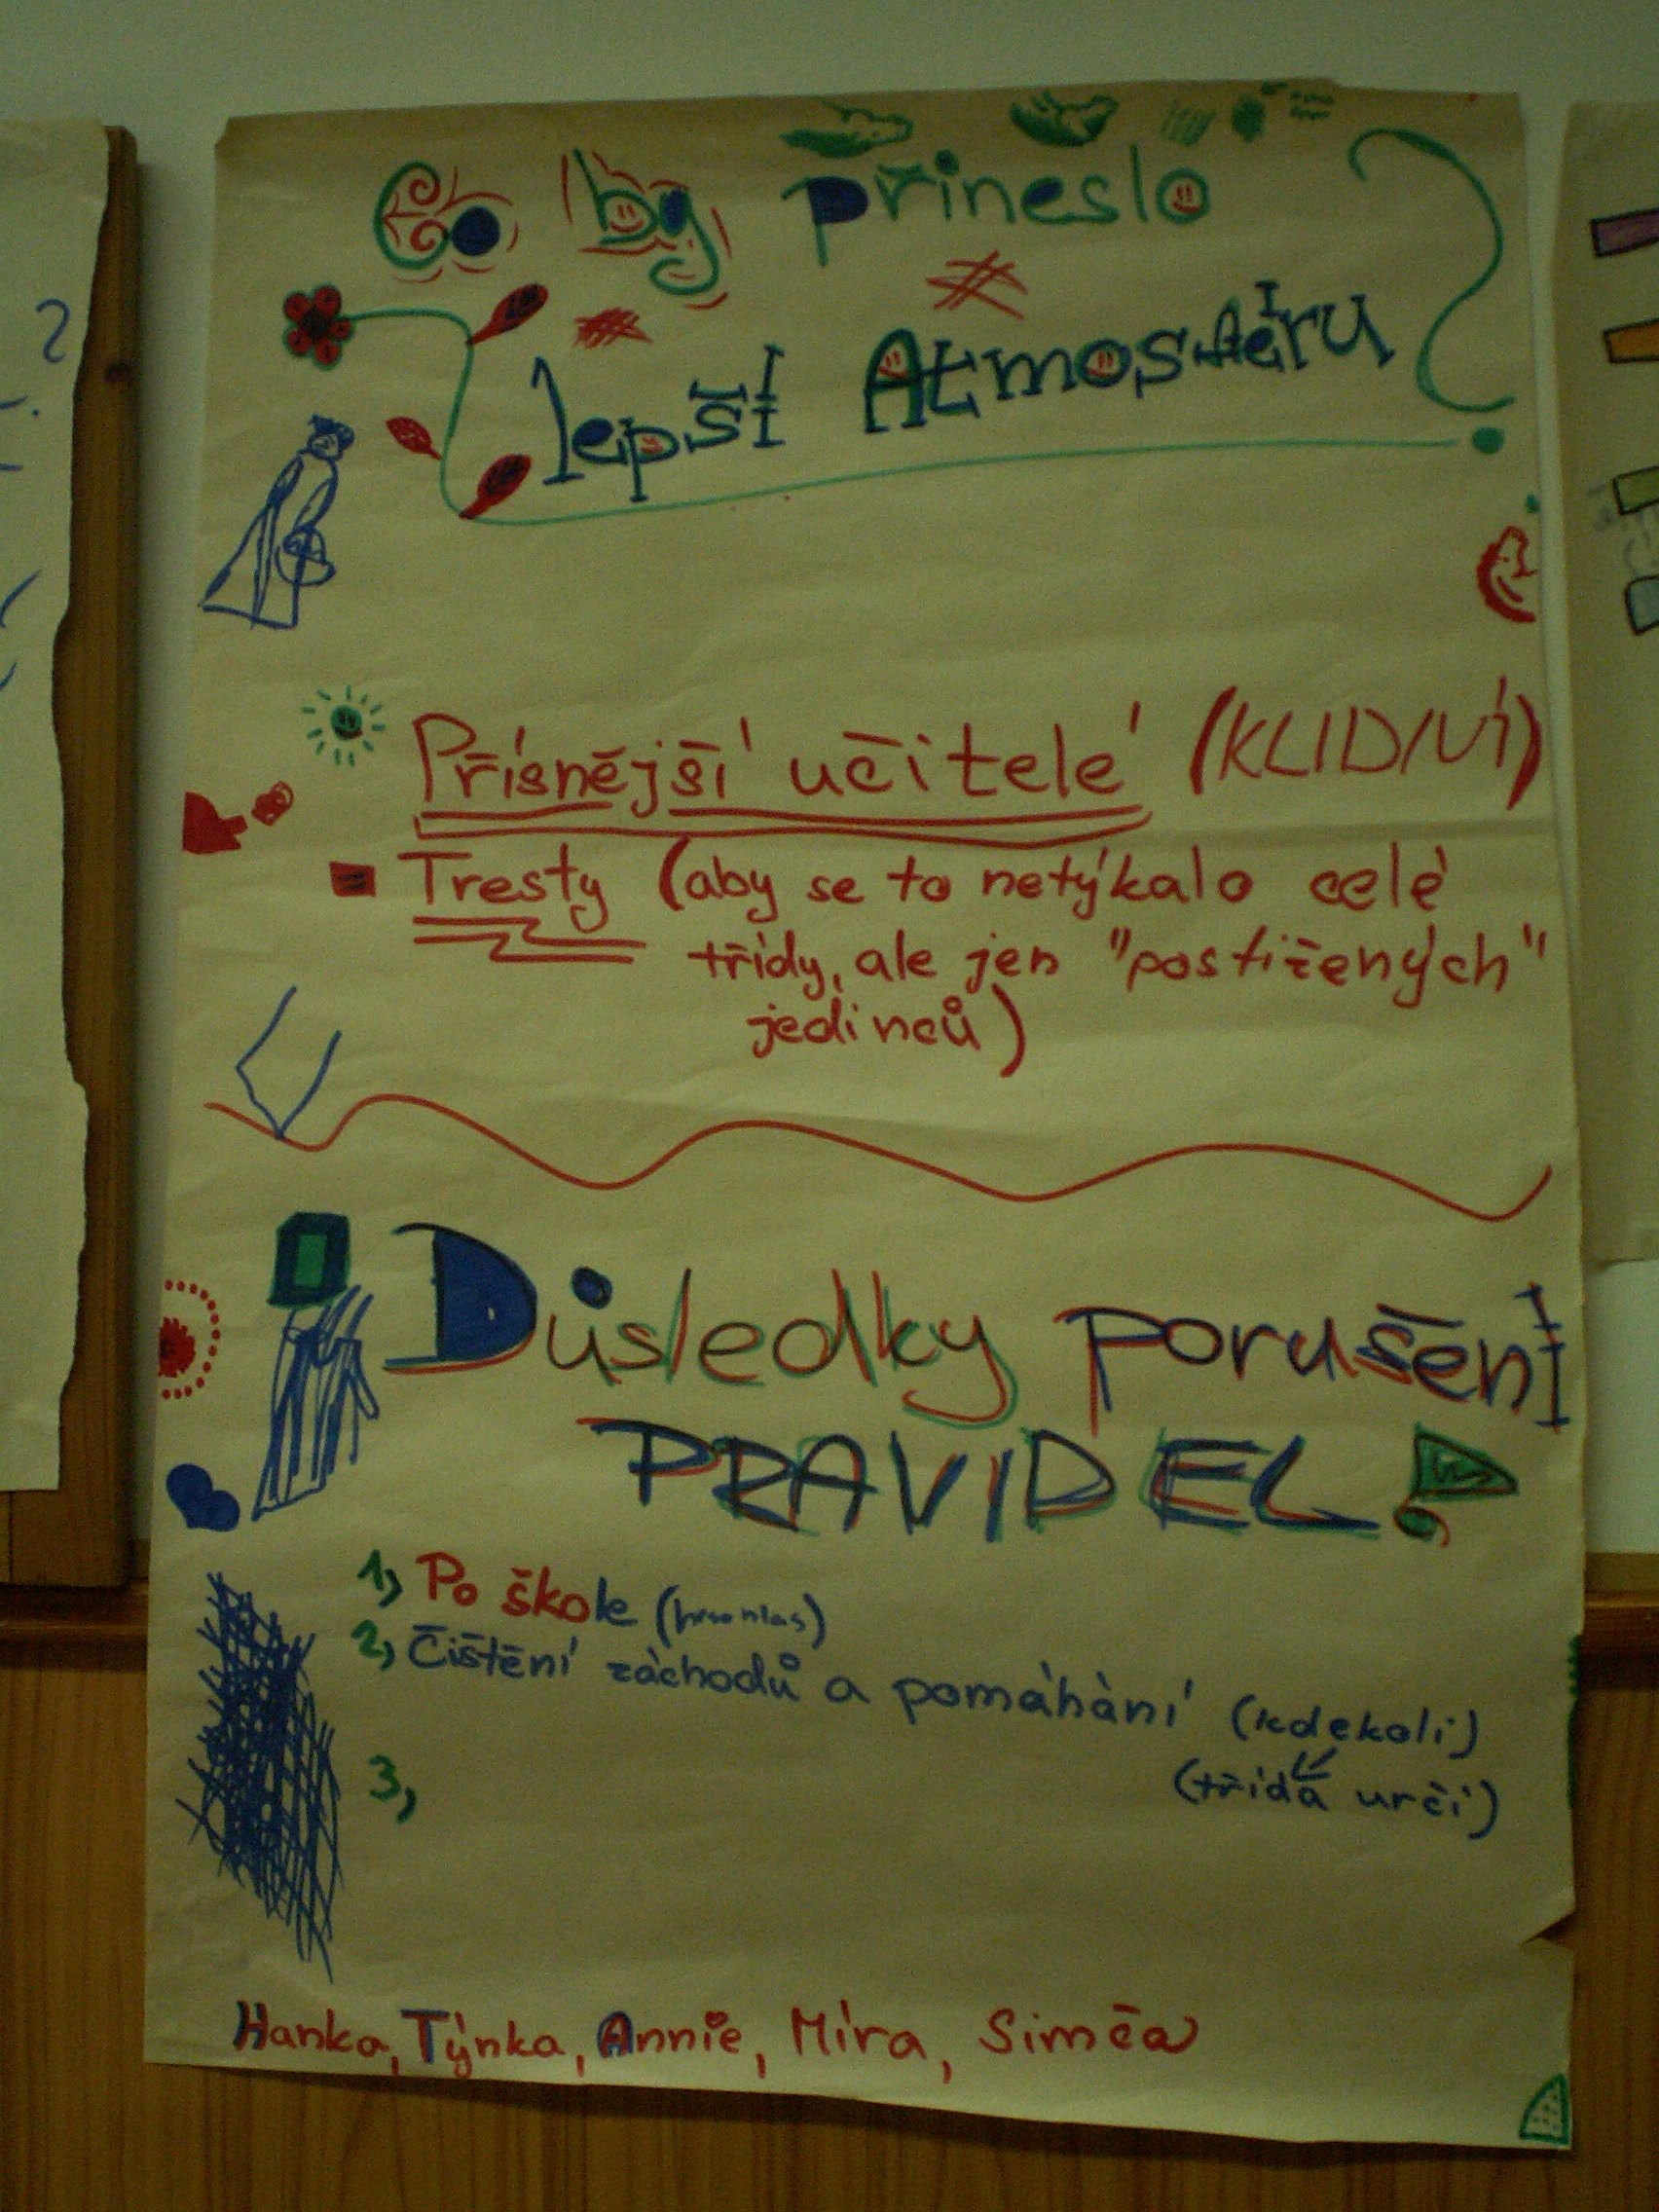 Co by přineslo
lepší Atmosféru?
Přísnější učitelé (KLIDNÍ)
Tresty (aby se to netýkalo celé
třídy, ale jen "postižených"
jedinců)
Důsledky porušení
PRAVIDEL
1, Po škole
2, Čištění záchodů a pomáhání (kdekoli)
(třída určí)
3,
Hanka, Týnka, Annie, Míra, Simča